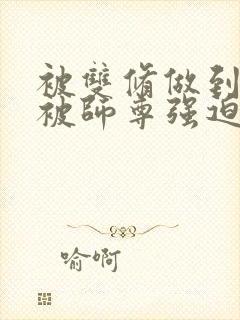 被雙脩做到
被師尊强迫
喻啊